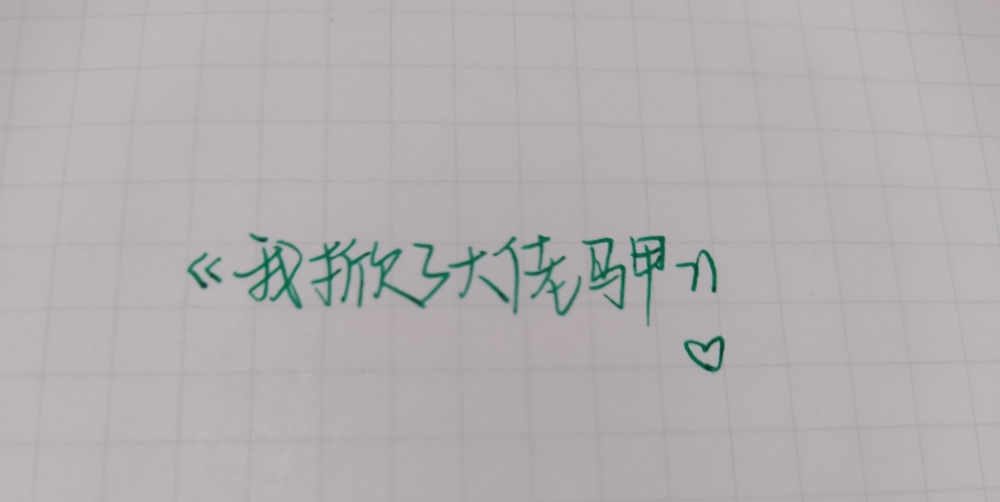 《我掀了大佬马甲》